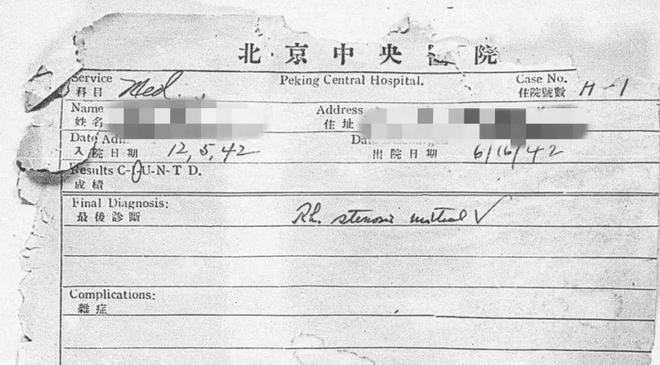 北京中央 院
Service Med. Peking Central Hospital. Case No. H-1
科目 住院號數
Name Address
姓名 住址
Date Ad
入院日期 12, 5, 42 出院日期 6/16/42
Results C-O-U-N-T D.
成績
Final Diagnosis: Rh. stenosis mitral V
最後診斷
Complications:
雜症